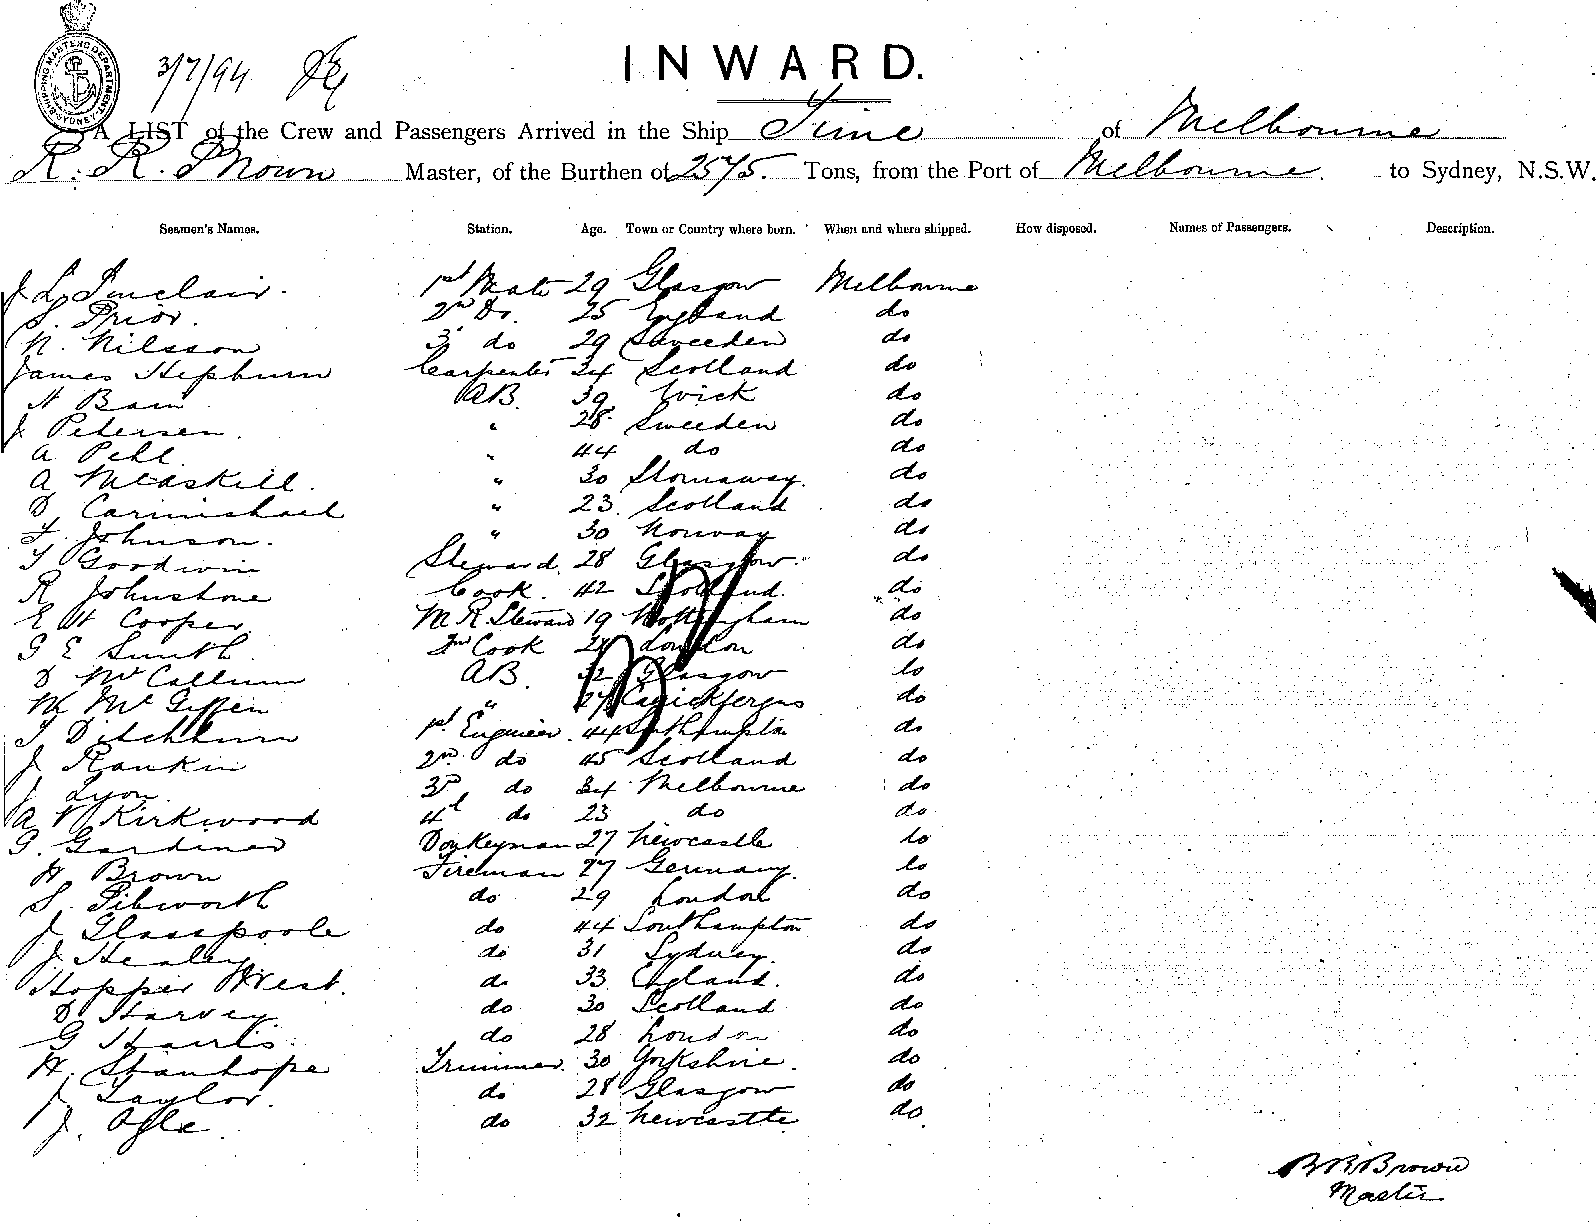 SHIPPING MASTERS DEPARTMENT. SYDNEY
3/7/94
INWARD.
A LIST of the Crew and Passengers Arrived in the Ship Time of Melbourne
R. R. Brown Master, of the Burthen of 2575. Tons, from the Port of Melbourne. to Sydney, N.S.W.
Seamen's Names. Station. Age. Town or Country where born. When and where shipped. How disposed. Names of Passengers. Description.
J L Sinclair. 1st Mate 29 Glasgow Melbourne
S. Prior. 2nd Do. 25 England do
N. Nilsson 3 do 29 Sweeden do
James Hepburn Carpenter 34 Scotland do
H Bain AB. 39 Wick do
J Petersen. " 28 Sweeden do
A Pehl. " 44 do do
A McAskill. " 30 Stornaway. do
D Carmichael " 23. Scotland do
F. Johnson. " 30 Norway do
T Goodwin Steward. 28 Glasgow. do
R Johnstone Cook. 42 Scotland. do
E H Cooper M. R. Steward 19 Nottingham do
G E Smith. 2nd Cook London do
D McCallum AB. 32 Glasgow do
W McGiffen " 27 Carickfergus do
T Ditchburn 1st. Engineer. 44 Southampton do
J Rankin 2nd do 45 Scotland do
J. Lyon 3rd do 34 Melbourne do
A Kirkwood 4th do 23 do do
G. Gardiner Donkeyman 27 Newcastle do
H Brown Fireman 27 Germany. do
S. Pibworth do 29 London do
J Glasspoole do 44 Southampton do
J. Healey do 31 Sydney. do
Hopper West. do 33. England. do
D Harvey. do 30 Scotland do
G Harris. do 28 London do
H. Stanhope Trimmer. 30 Yorkshire. do
J Taylor. do 28 Glasgow do
J. Ogle. do 32 Newcastle do.
R R Brown
Master